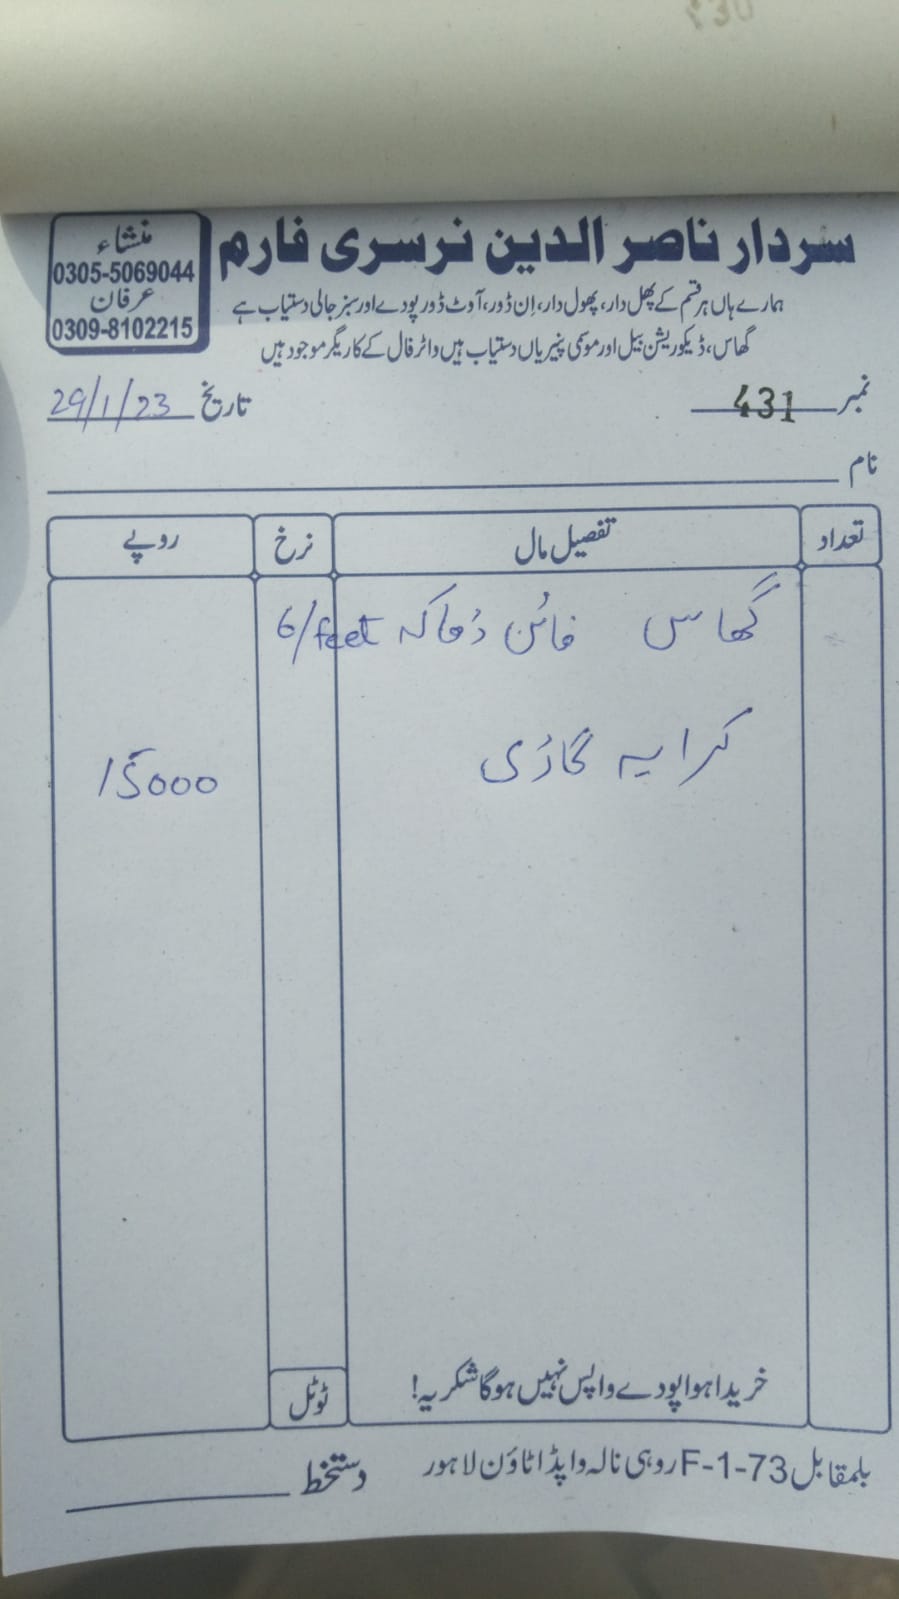 سردار ناصر الدین نرسری فارم
منشاء
0305-5069044
عرفان
0309-8102215
ہمارے ہاں ہر قسم کے پھل دار، پھول دار، اِن ڈور، آوٹ ڈور پودے اور سبز جالی دستیاب ہے
گھاس، ڈیکوریشن بیل اور موسمی پنیریاں دستیاب ہیں واٹر فال کے کاریگر موجود ہیں
نمبر 431 تاریخ 29/1/23
نام
تعداد تفصیل مال نرخ روپے
گھاس فائن ڈھاکہ 6/feet
کرایہ گاڑی 15000
خریدا ہوا پودے واپس نہیں ہوگا شکریہ!
ٹوٹل
بلمقابل F-1-73 روہی نالہ واپڈا ٹاؤن لاہور دستخط